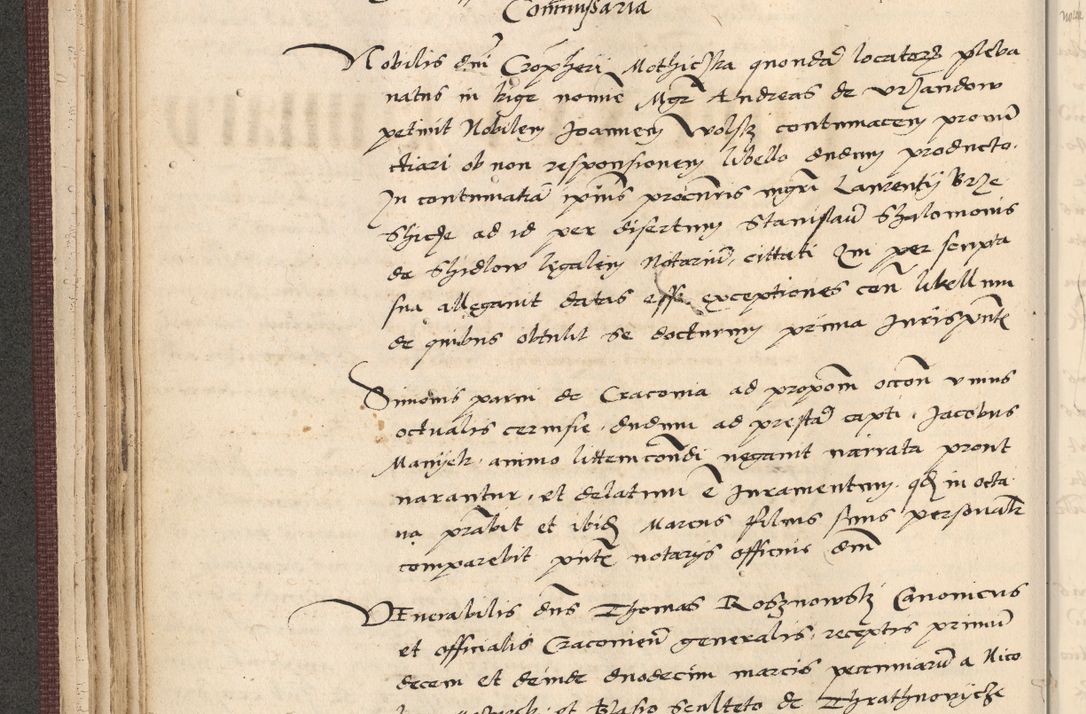 Commissaria
Nobilis dni Cropheri Mothiczka quonda locatorz pleba
natus in huiꝯ nomine Mgr Andreas de Urzandow
petiuit Nobilem Joannem Wolsky contumacem pronu
ctiari ob non responsionem libello dudum producto.
In contumatia ipius procuris mgri Laurentij Brze
Shicze ad id per disertum Stanislau Shalomonis
de Shidlow legalem Notariu, cittati Qui per scripta
sua allegauit datas esse exceptiones con libellum
de quibus obtulit se docturum prima Juris pnte
Simonis parui de Cracouia ad propom occon unius
octualis ceruisie dudum ad presta capti, Jacobus
Maniek, animo litem condi negauit narrata pront
narantur, et delatum e Juramentum, qd in octa
ua prabit et ibid Marcus filius suus personalr
comparebit pnte notarijs officijs dni
Venerabilis dns Thomas Rosznowskj Canonicus
et officialis Cracouien generalis, receptis primu
decem et deinde duodecim marcis pecuniaru a Nico
et Blasio Sculteto de Thrathnowycze